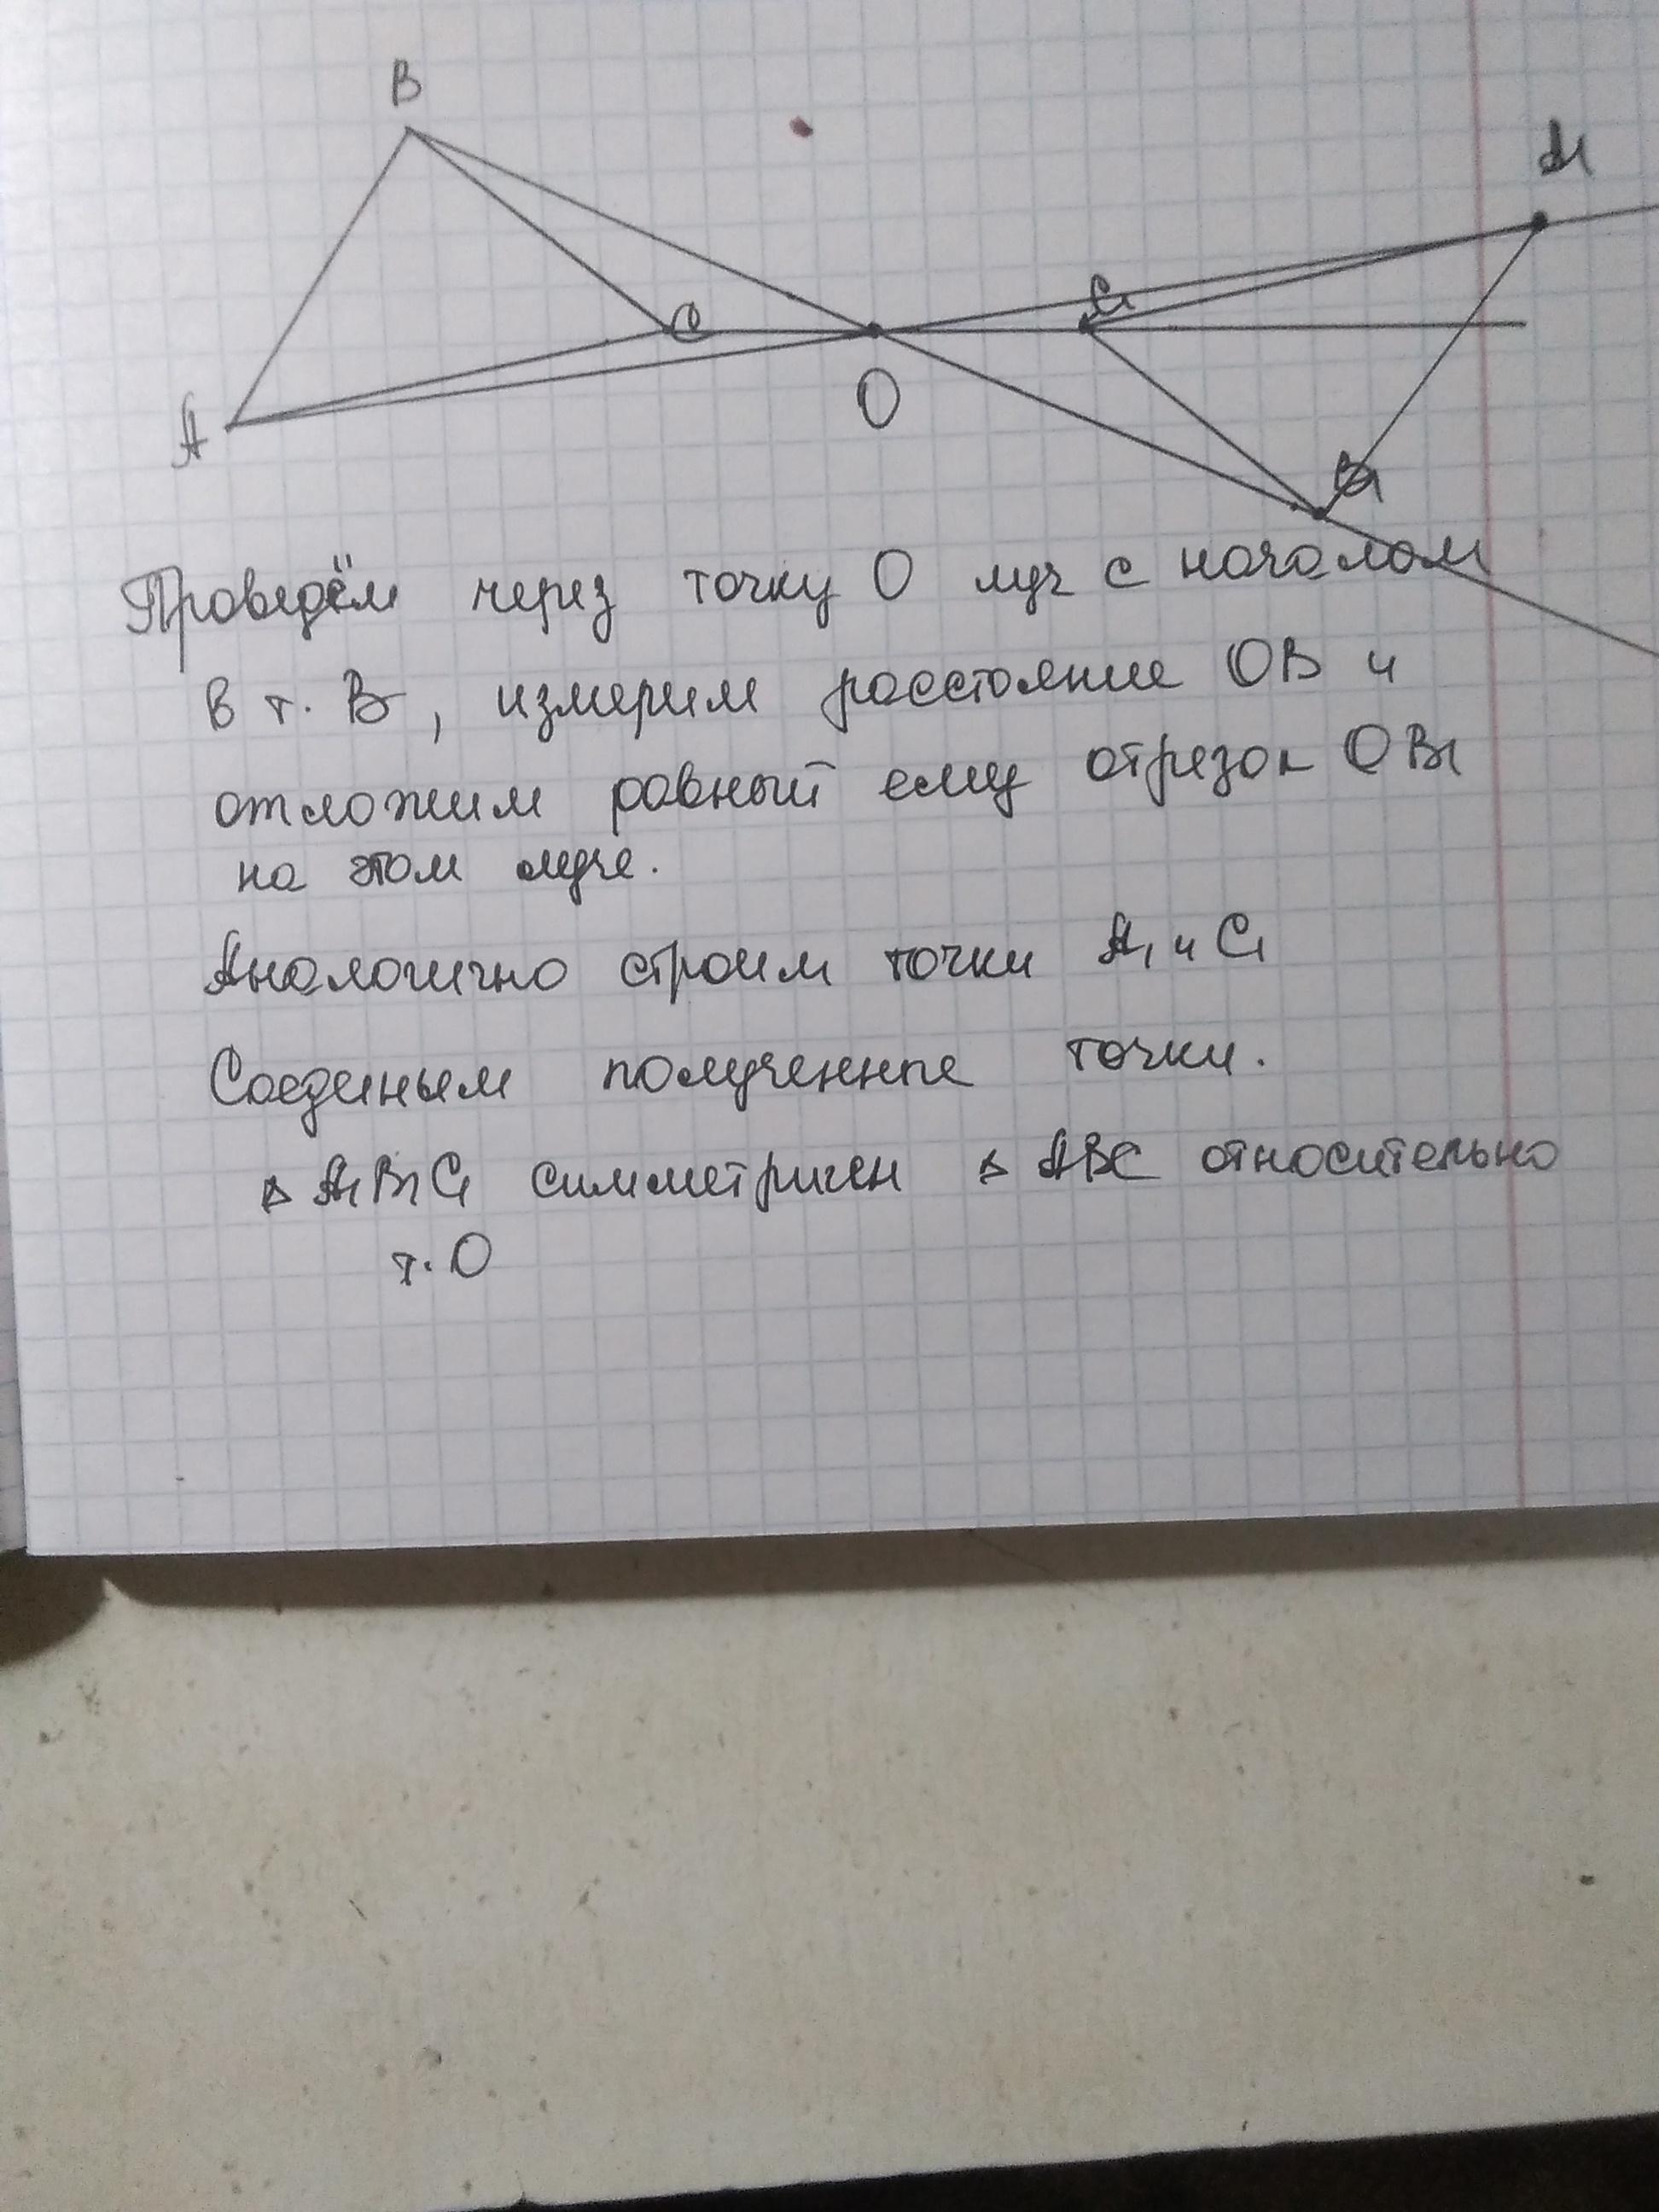 B
A1
C1
C
A
O
B1
Проведём через точку O луч с началом
в т. B, измерим расстояние OB и
отложим равный ему отрезок OB1
на этом луче.
Аналогично строим точки A1 и C1
Соединым полученные точки.
△ A1B1C1 симметричен △ ABC относительно
т. O